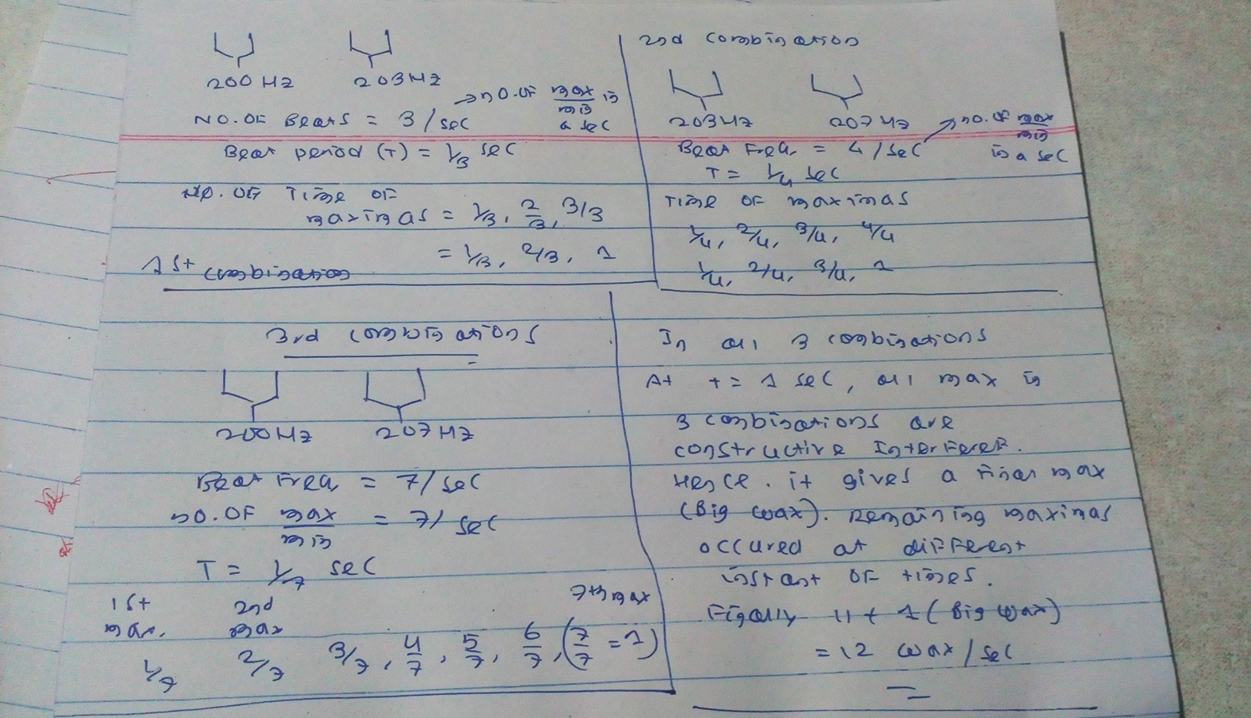 200 Hz 203 Hz
→ no. of max/min in a sec
No. of Beats = 3/sec
Beat period (T) = 1/3 sec
No. of Time of
maximas = 1/3, 2/3, 3/3
= 1/3, 2/3, 1
1st combination
2nd combination
203 Hz 207 Hz
→ no. of max/min in a sec
Beat Freq = 4/sec
T = 1/4 sec
Time of maximas
1/4, 2/4, 3/4, 4/4
1/4, 2/4, 3/4, 1
3rd combinations
200 Hz 207 Hz
Beat Freq = 7/sec
no. of max/min = 7/sec
T = 1/7 sec
1st max. 2nd max 7th max
1/7 2/7 3/7, 4/7, 5/7, 6/7, (7/7 = 1)
In all 3 combinations
At t = 1 sec, all max in
3 combinations are
constructive Interferef.
Hence. it gives a final max
(Big wax). Remaining maximas
occured at different
instant of times.
Finally 11 + 1 (Big wax)
= 12 wax/sec